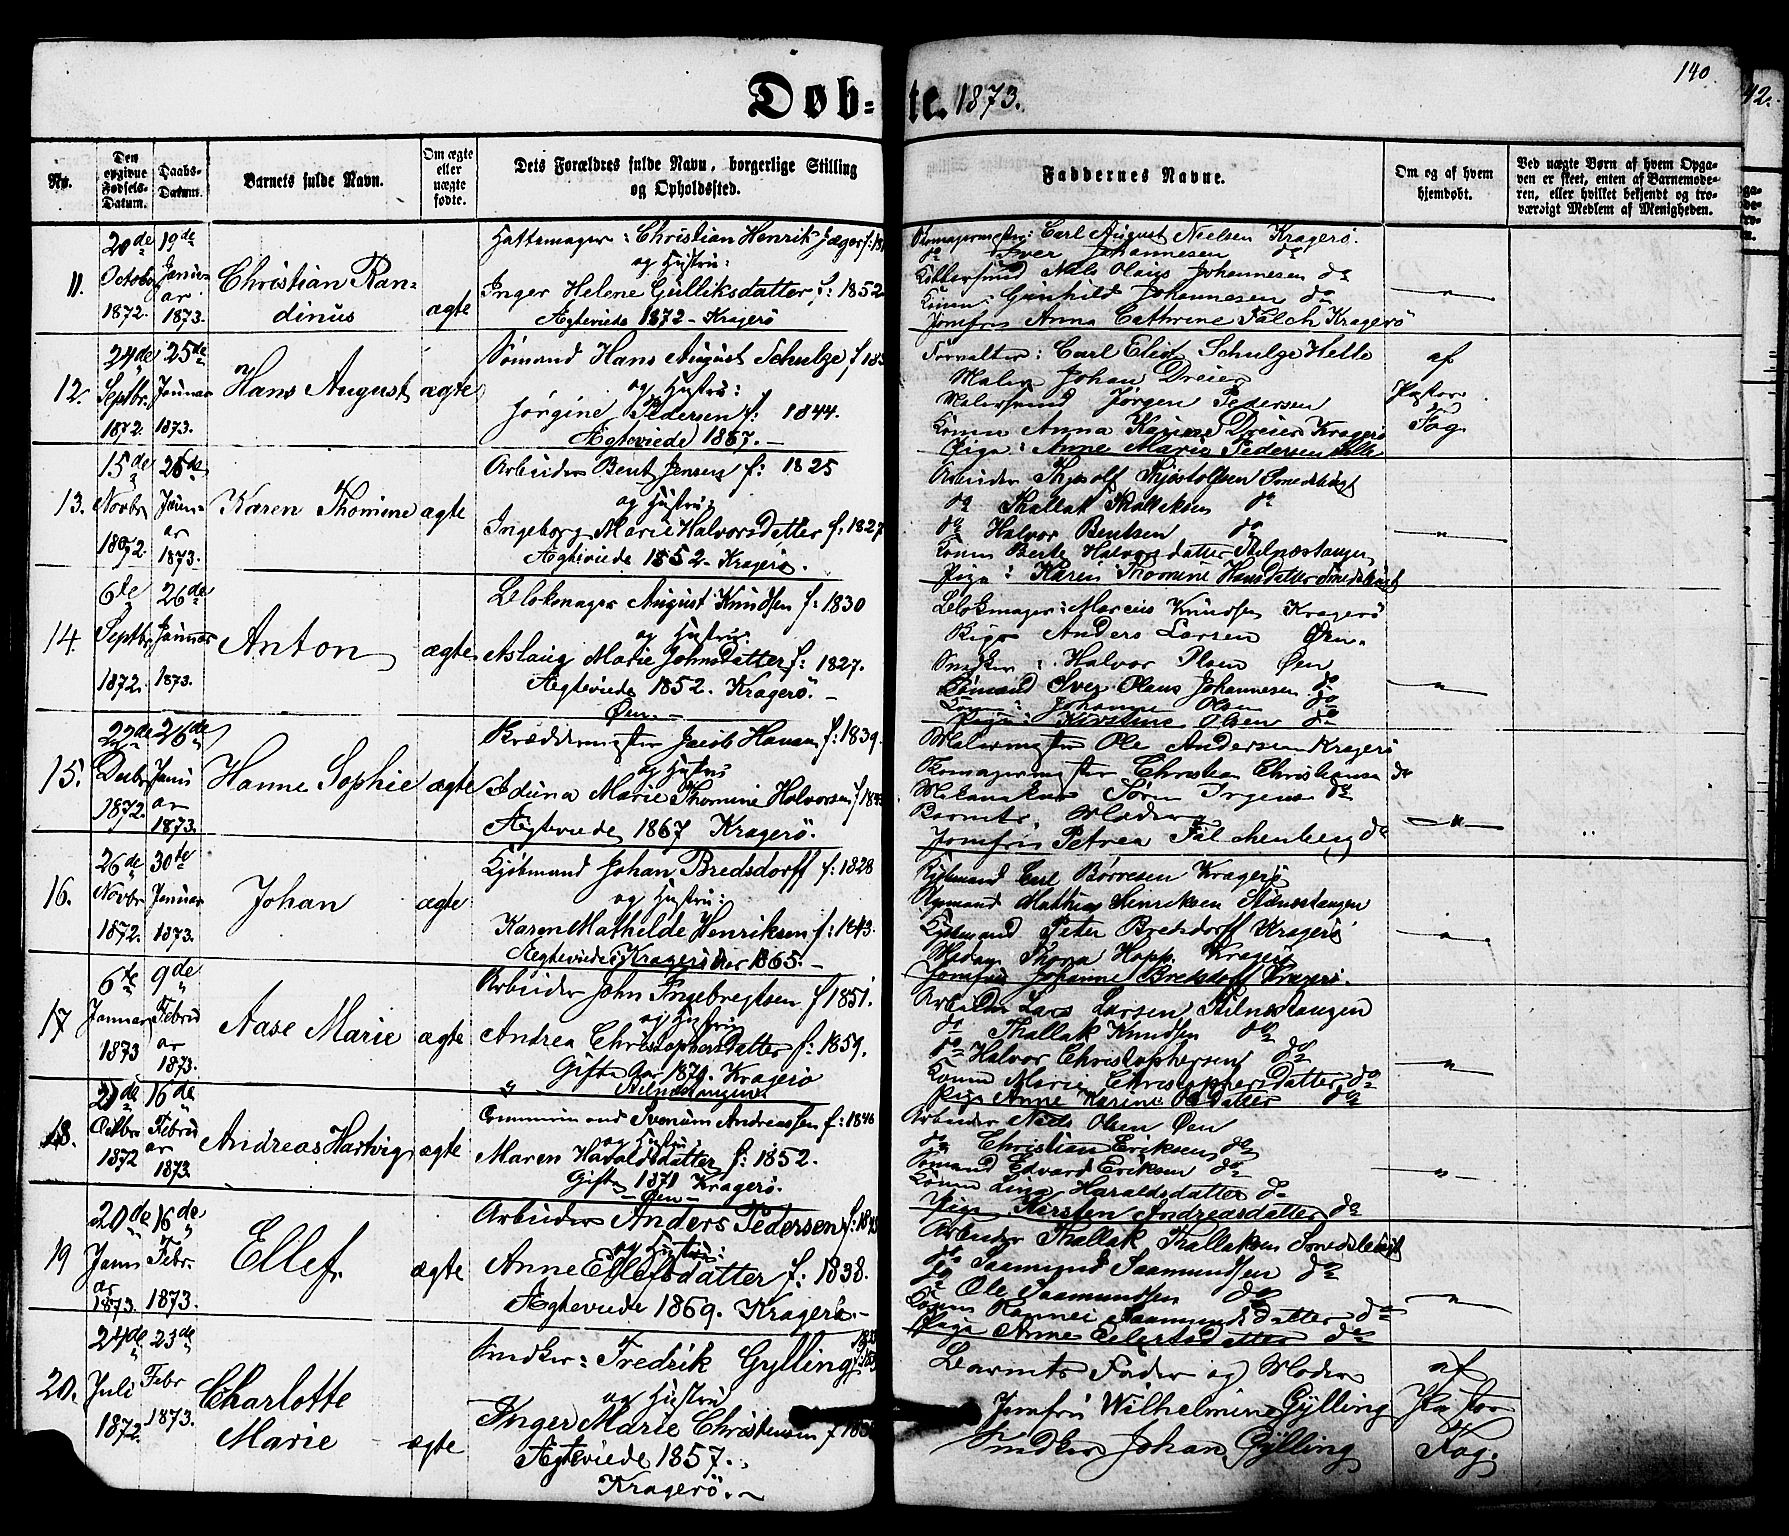 140.
42.
Døb-
te. 1873.
Nr.
Den opgivne Fødsels-Datum.
Daabs-Datum.
Barnets fulde Navn.
Om ægte eller uægte fødte.
Dets Forældres fulde Navn, borgerlige Stilling og Opholdssted.
Faddernes Navne.
Om og af hvem hjemdøbt.
Ved uægte Børn af hvem Opgaven er skeet, enten af Barnemoderen, eller hvilket bekjendt og troværdigt Medlem af Menigheden.
11.
20de October 1872.
19de Januar 1873.
Christian Randinus
ægte
Hattemager: Christian Henrik Jæger
og Hustru:
Inger Helene Gulliksdatter f: 1852
Ægteviede 1872 - Kragerö
Carl August Nielsen Kragerö.
do Iver Johannesen do
Nils Olaus Johannesen do
Konen: Gunhild Johannesen do
Jomfru Anna Cathrine Falch Kragerö
12.
24de Septbr. 1872.
25de Januar 1873.
Hans August
ægte
Sömand Hans August Schulze
og Hustru:
Jörgine Pedersen f: 1844.
Ægteviede 1867. -
Forvalter: Carl Schulze Helle
Maler Johan Dreier
Malersvend Jörgen Pedersen
Konen Anna Dreier Kragerö
Pige: Anne Marie Pedersen Helle
af Pastor Fog.
13.
15de Novbr 1872.
26de Januar 1873.
Karen Thomine
ægte
Arbeider Bent Jensen f: 1825
og Hustru:
Ingeborg Marie Halvorsdatter f: 1827
Ægteviede 1852 - Kragerö.
Arbeider
do Thallak do
do Halvor Bentsen do
Konen Berte Halvorsdatter
Pige: Karen Thomine Hansdatter
14.
6te Septbr. 1872.
26de Januar 1873.
Anton
ægte
Blokmager August Knudsen f: 1830
og Hustru:
Aslaug Marie Johnsdatter f: 1827.
Ægteviede 1852. Kragerö. -
Øen. -
Blokmager: Marcus Knudsen Kragerö
Anders Larsen Øen.
Snedker: Halvor Olsen Øen
Sömand Iver Olaus Johannesen do
Konen: Johanne Olsen do
Pige: Kirstine Olsen do
15.
Decbr 1872.
26de Januar 1873.
Hanne Sophie
ægte
Jacob Hansen f: 1839.
og Hustru
Iduna Marie Thomine Halvorsen
Ægteviede 1867 Kragerö.
Malermester Ole Andersen Kragerö
Christian Christiansen do
Sören Irgens do
Barnets Moder
Jomfru Petrea Falchenberg do
16.
26de Novbr 1872.
30te Januar 1873.
Johan
ægte
Kjöbmand Johan Bredsdorff f: 1828
og Hustru:
Karen Mathilde Henriksen f: 1843.
Ægteviede Kragerö Aar 1865. -
Kjöbmand Carl Börresen Kragerö
Mathias Henriksen
Kjöbmand Peter Bredsdorff Kragerö
Madam Thora Hopp Kragerö
Jomfru Johanne Bredsdorff Kragerö.
17
6te Januar 1873
9de Februar 1873.
Aase Marie
ægte
Arbeider John Ingebregtsen f 1851.
og Hustru
Andrea Christophersdatter f: 1859.
Gifte Aar Kragerö
Arbeider Lars Larsen
do Thallak Knudsen do
do Halvor Christophersen do
Konen Marie Christophersdatter do
Pige Anne Karine do
18.
Octbr 1872
16de Februar 1873.
Andreas Hartvig
ægte
Andreassen f: 1846
og Hustru
Maren Haraldsdatter f: 1852.
Gifte 1871 Kragerö.
- Øen -
Arbeider Niels Olsen Øen
do Christian Eriksen do
Sömand Edvard Eriksen do
Konen Lina Haraldsdatter do
Pige Kirsten Andreasdatter do
19
20de Januar 1873.
16de Febr. 1873.
Ellef
ægte
Arbeider Anders Pedersen
og Hustru:
Anne Ellefsdatter f: 1838.
Ægteviede 1869. Kragerö. -
Arbeider Thallak Thallaksen
do Saamund Saamundsen do
do Ole Saamundsen do
Konen Saamundsdatter do
Pige Anne do
20.
24de Juli 1872.
23de Febr 1873.
Charlotte Marie
ægte
Snedker: Fredrik Gylling
og Hustru
Inger Marie Christensen
Ægteviede 1857.
Kragerö. -
Barnets Fader og Moder
Jomfru Wilhelmine Gylling
Snedker Johan Gylling
af Pastor Fog.